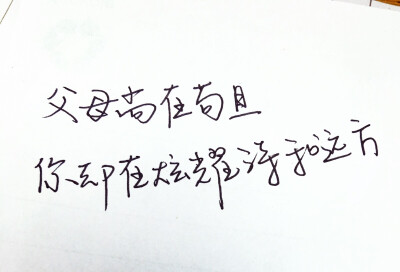 父母尚在苟且
你却在炫耀诗和远方